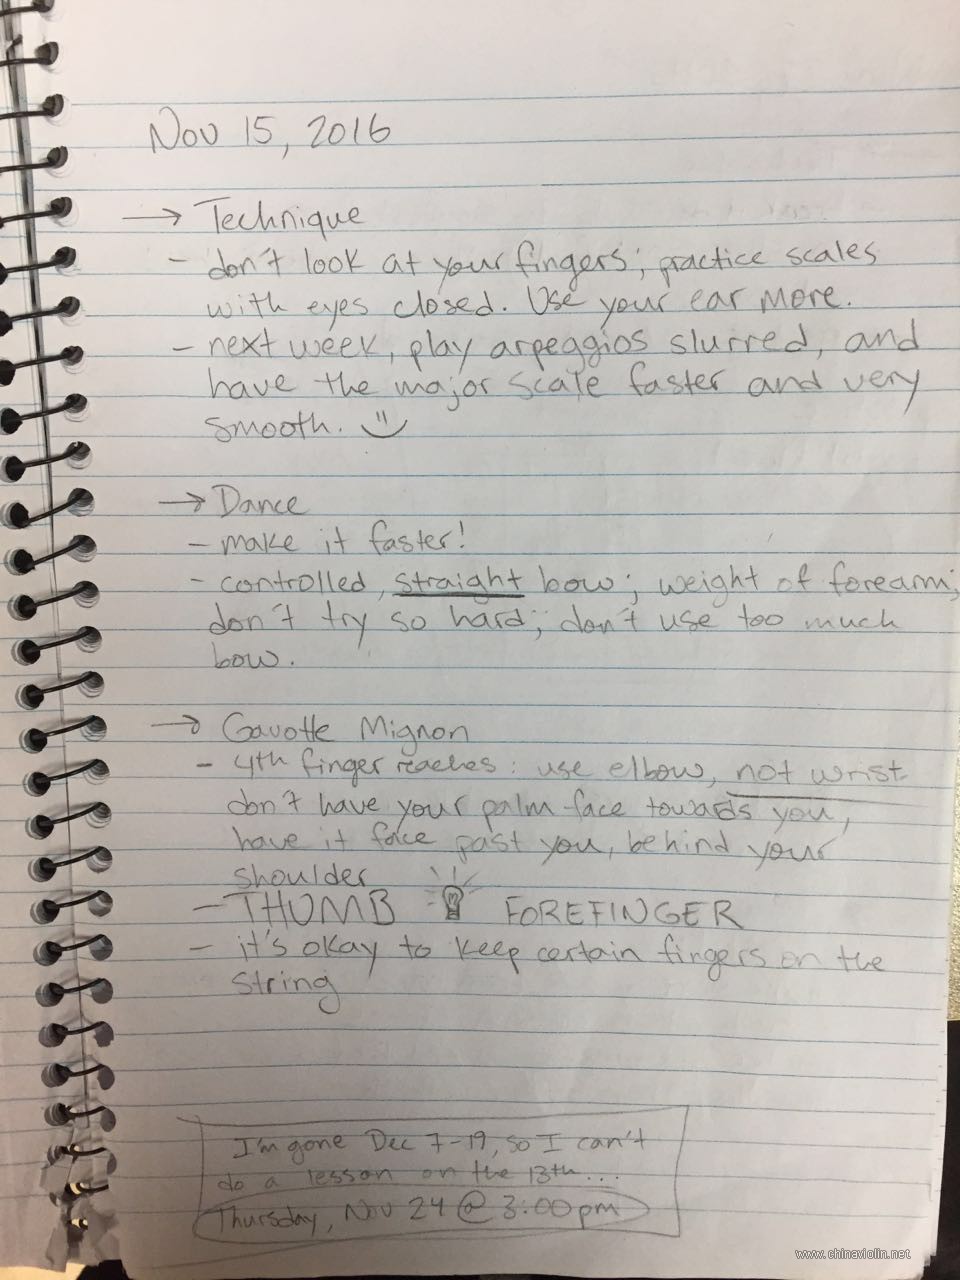 Nov 15, 2016
→ Technique
- don't look at your fingers; practice scales
with eyes closed. Use your ear more.
- next week, play arpeggios slurred, and
have the major scale faster and very
smooth.
→ Dance
- make it faster!
- controlled, straight bow; weight of forearm;
don't try so hard; don't use too much
bow.
→ Gavotte Mignon
- 4th finger reaches: use elbow, not wrist
don't have your palm face towards you,
have it face past you, behind your
shoulder
- THUMB FOREFINGER
- it's okay to keep certain fingers on the
string
I'm gone Dec 7-19, so I can't
do a lesson on the 13th...
Thursday, Nov 24 @ 3:00pm
www.chinaviolin.net